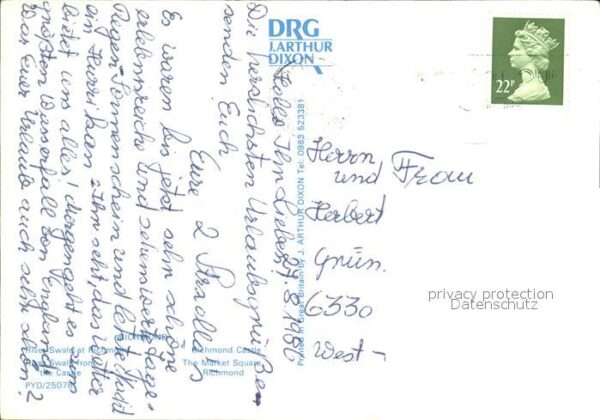 DRG
J. ARTHUR
DIXON
22P
Hallo Ihr Lieben, 27.8.1986
Die herzlichsten Urlaubsgrüße
senden Euch
Eure 2
Es waren bis jetzt sehr schöne
erlebnisreiche und sehenswerte Tage.
Regen, Sonnenschein und letzte Nacht
ein Hurrikan. Ihr seht, das Wetter
bietet uns alles! Morgen geht es zum
größten Wasserfall von England.
War Euer Urlaub auch sehr schön?
Herrn
und Frau
Herbert
Grün.
6330
West-
Printed in Great Britain by J. ARTHUR DIXON Tel: 0983 523381
RICHMOND
River Swale at Richmond
Richmond Castle
River Swale from
the Castle
The Market Square
Richmond
PYD/25078
privacy protection
Datenschutz